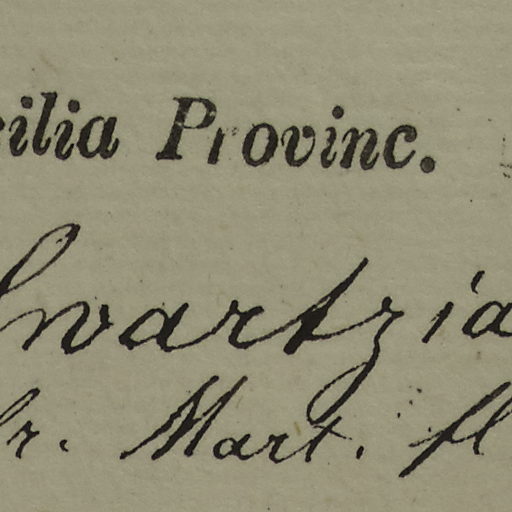 ilia Provinc.
Swartzia
r. Mart. fl